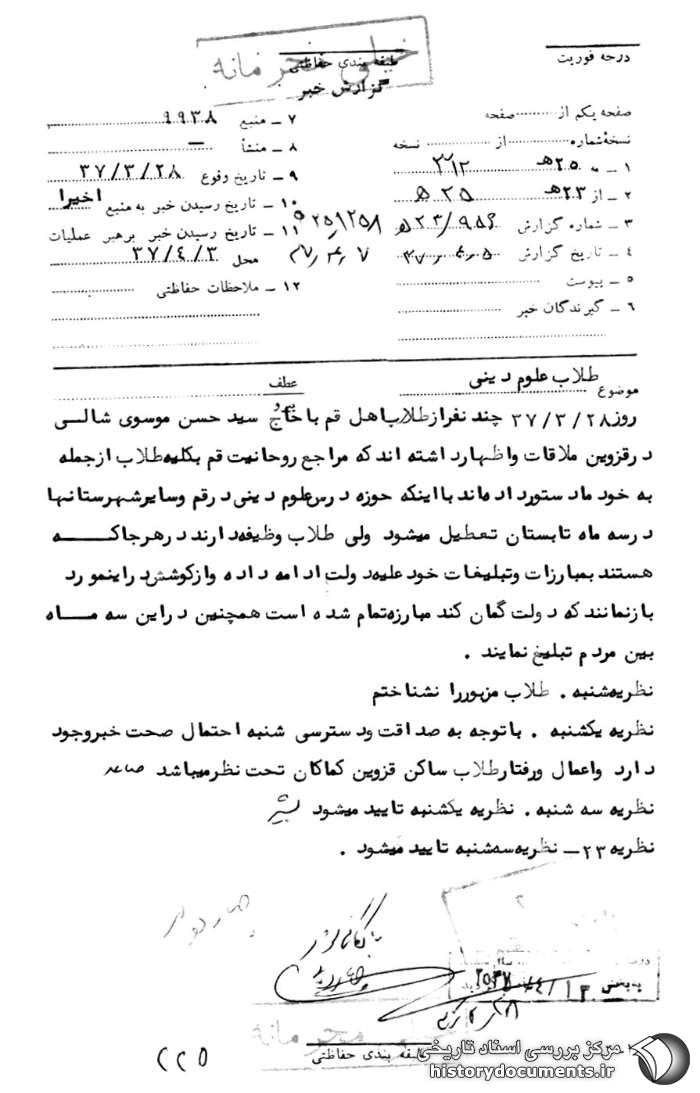 خیلی محرمانه
درجه فوریت
طبقه بندی حفاظتی
گزارش خبر
صفحه یکم از صفحه
۷ ـ منبع ۹۹۳۸
نسخهٔ شماره از نسخه
۸ ـ منشأ —
۱ ـ به ۲۵ هـ ۳۱۲
۹ ـ تاریخ وقوع ۳۷/۳/۲۸
۲ ـ از ۲۳ هـ ۲۵ هـ
۱۰ ـ تاریخ رسیدن خبر به منبع اخیرا
۳ ـ شماره گزارش
۱۱ ـ تاریخ رسیدن خبر برهبر عملیات
۴ ـ تاریخ گزارش
محل ۳۷/٤/۳
۵ ـ پیوست
۱۲ ـ ملاحظات حفاظتی
۶ ـ گیرندگان خبر
موضوع طلاب علوم دینی
عطف
روز ۳۷/۳/۲۸ چند نفر از طلاب اهل قم با حاج سید حسن موسوی شالی
در قزوین ملاقات و اظهار داشته اند که مراجع روحانیت قم بکلیه طلاب از جمله
به خود ما دستور داده اند با اینکه حوزه درس علوم دینی در قم و سایر شهرستانها
در سه ماه تابستان تعطیل میشود ولی طلاب وظیفه دارند در هر جا کـــه
هستند بمبارزات و تبلیغات خود علیه دولت ادامه داده و از کوشش در اینمورد
باز نمانند که دولت گمان کند مبارزه تمام شده است همچنین در این سه مـــاه
بین مردم تبلیغ نمایند .
نظریه شنبه . طلاب مزبور را نشناختم
نظریه یکشنبه . با توجه به صداقت و دسترسی شنبه احتمال صحت خبر وجود
دارد و اعمال و رفتار طلاب ساکن قزوین کماکان تحت نظر میباشد
نظریه سه شنبه . نظریه یکشنبه تایید میشود
نظریه ۲۳ ـ نظریه سه شنبه تایید میشود .
بایگانی شود
خیلی محرمانه
طبقه بندی حفاظتی
مرکز بررسی اسناد تاریخی
historydocuments.ir